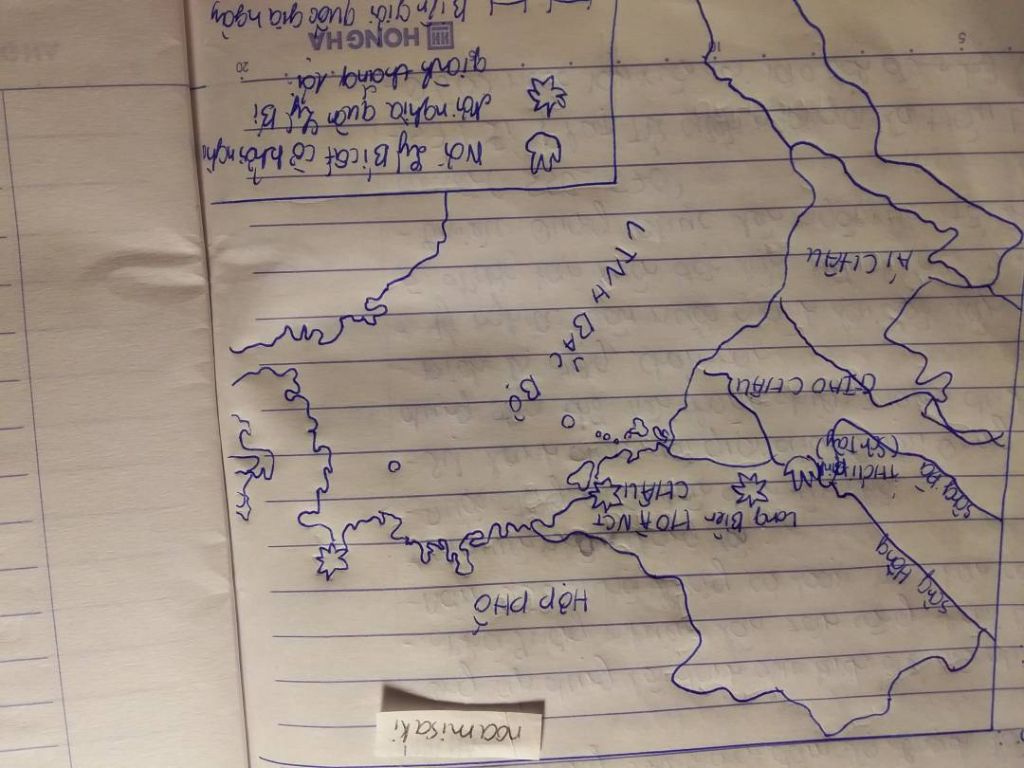 noamisaki
HỢP PHỐ
Sông Hồng
Sông Đà
Long Biên
HOÀNG
CHÂU
(Sơn Tây)
GIAO CHÂU
VỊNH BẮC BỘ
ÁI CHÂU
Nơi Lý Bí cất cờ khởi nghĩ
Nơi nghĩa quân Lý Bí
giành thắng lợi
HONG HA
Biên giới quốc gia ngày
5
10
20